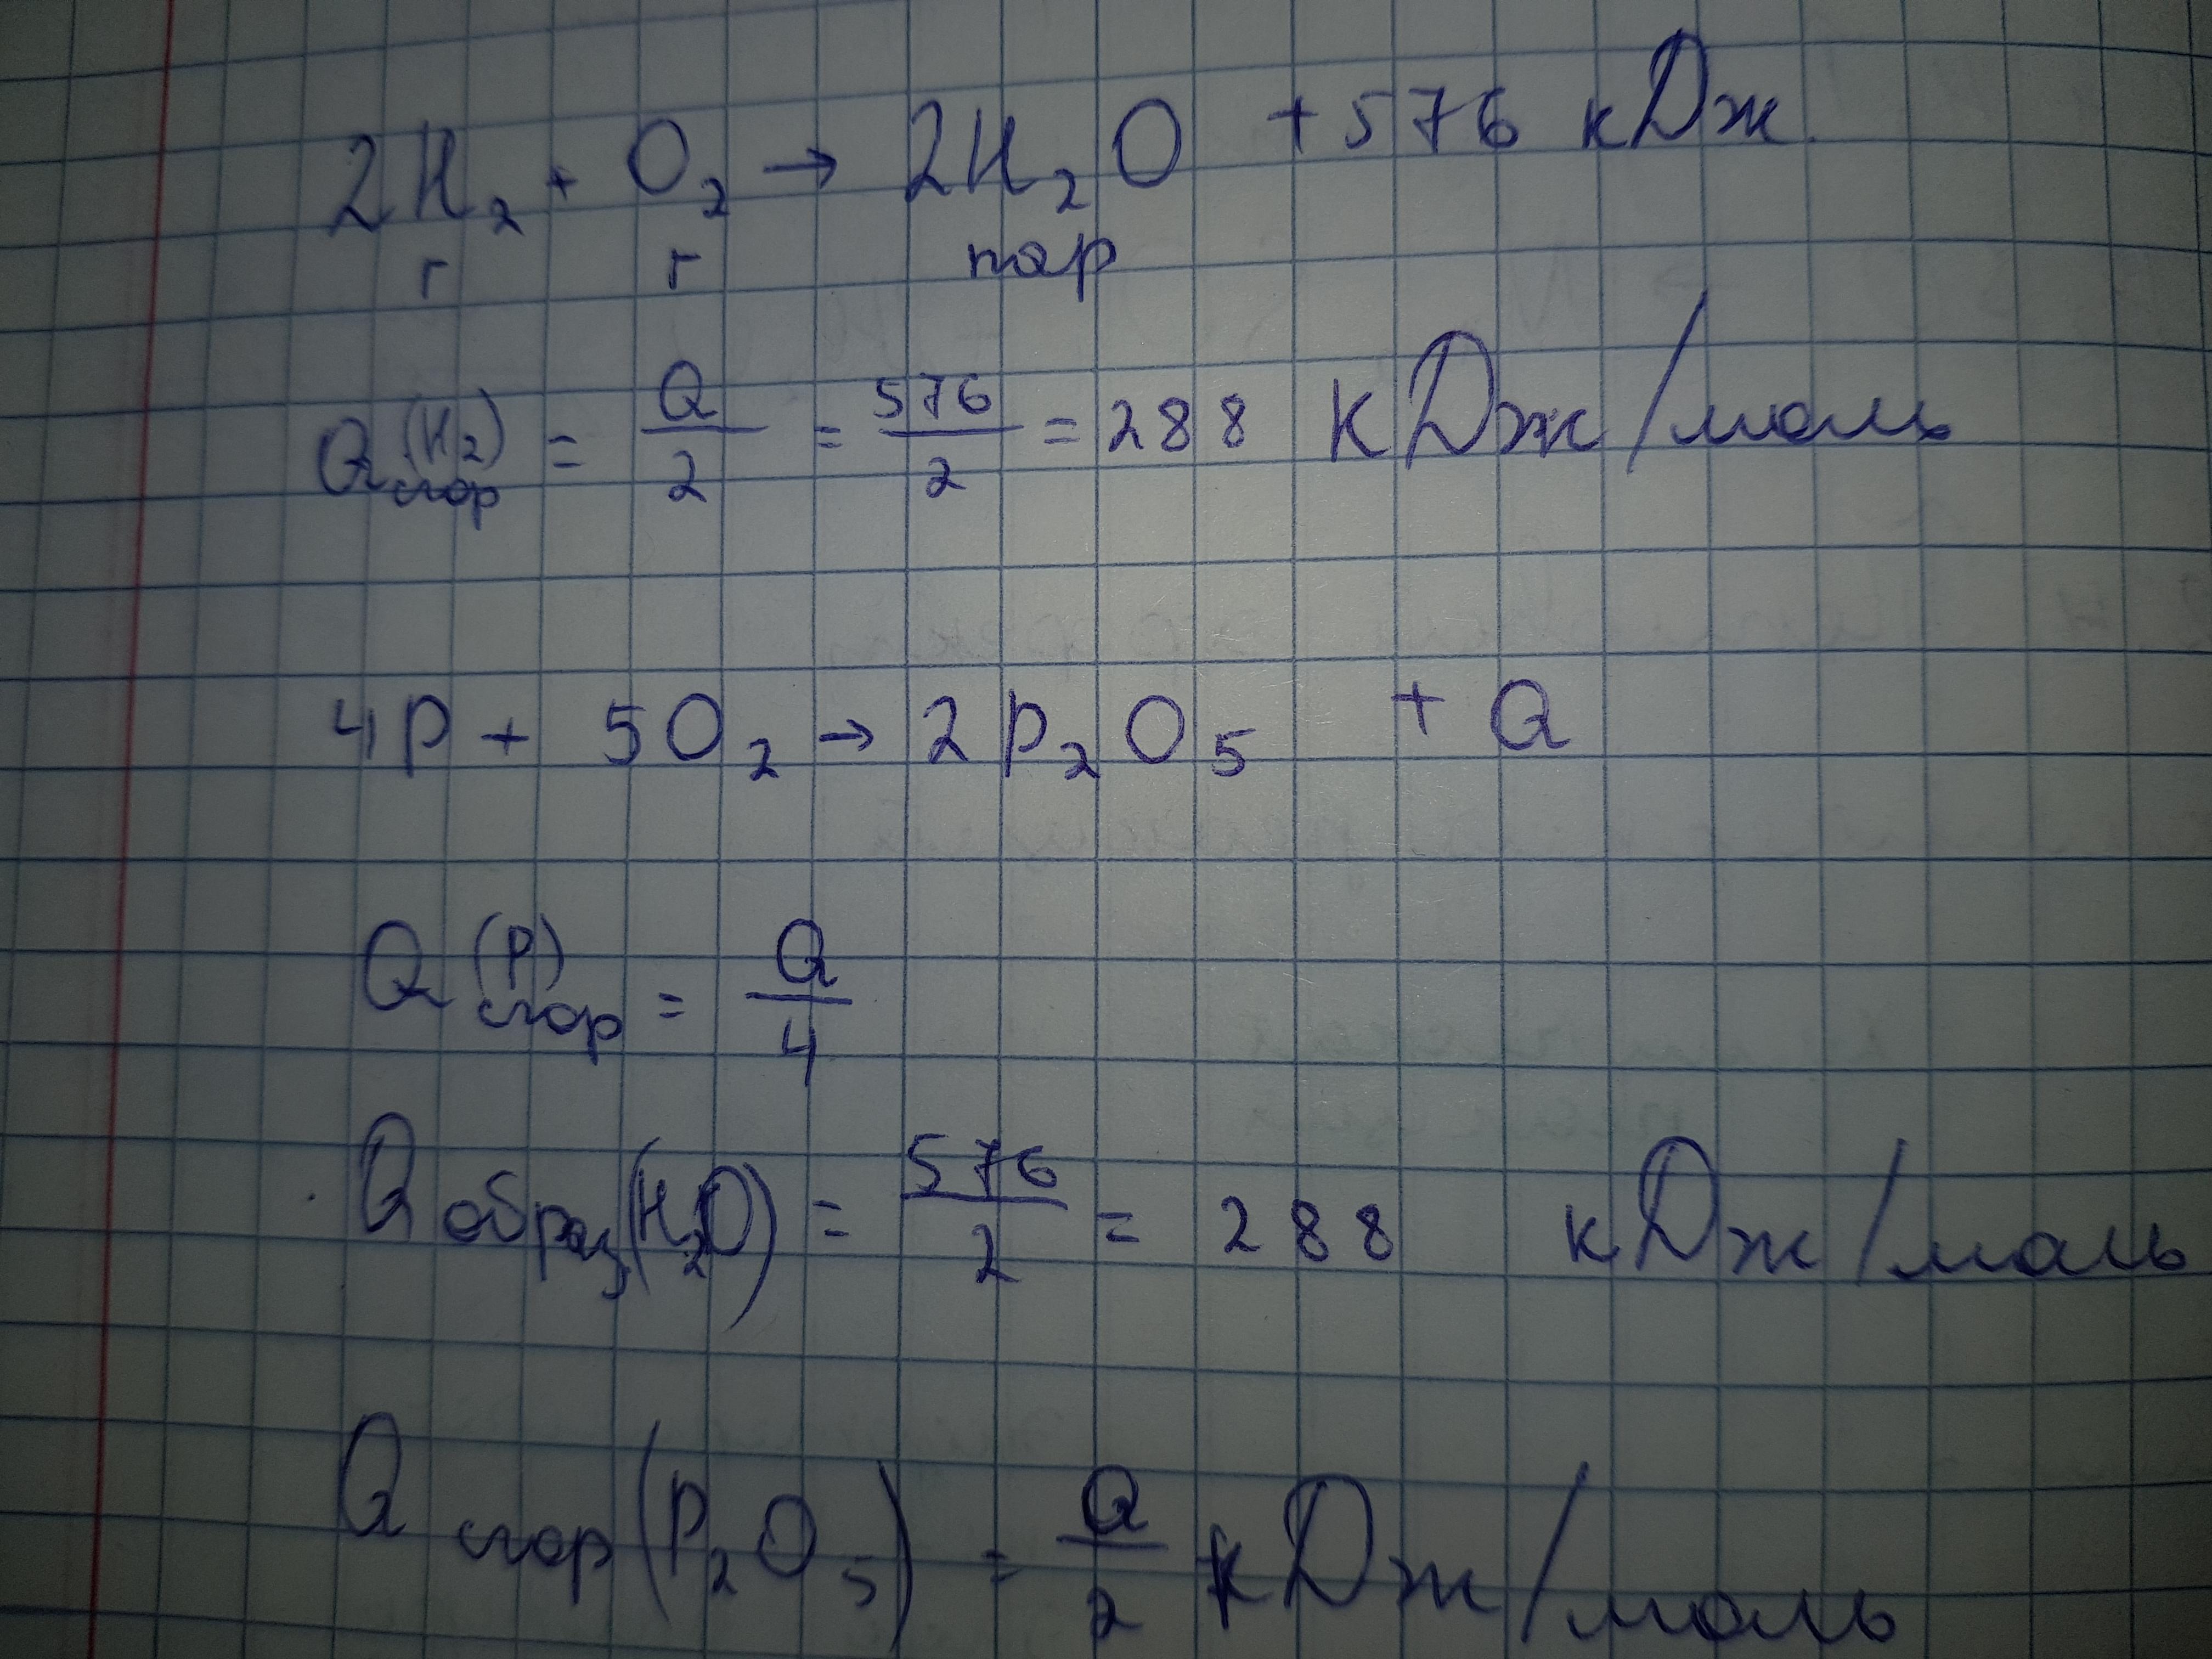 2H₂ + O₂ → 2H₂O + 576 кДж
г г пар
Qсгор(H₂) = Q/2 = 576/2 = 288 кДж/моль
4P + 5O₂ → 2P₂O₅ + Q
Qсгор(P) = Q/4
Qобраз(H₂O) = 576/2 = 288 кДж/моль
Qсгор(P₂O₅) = Q/2 кДж/моль